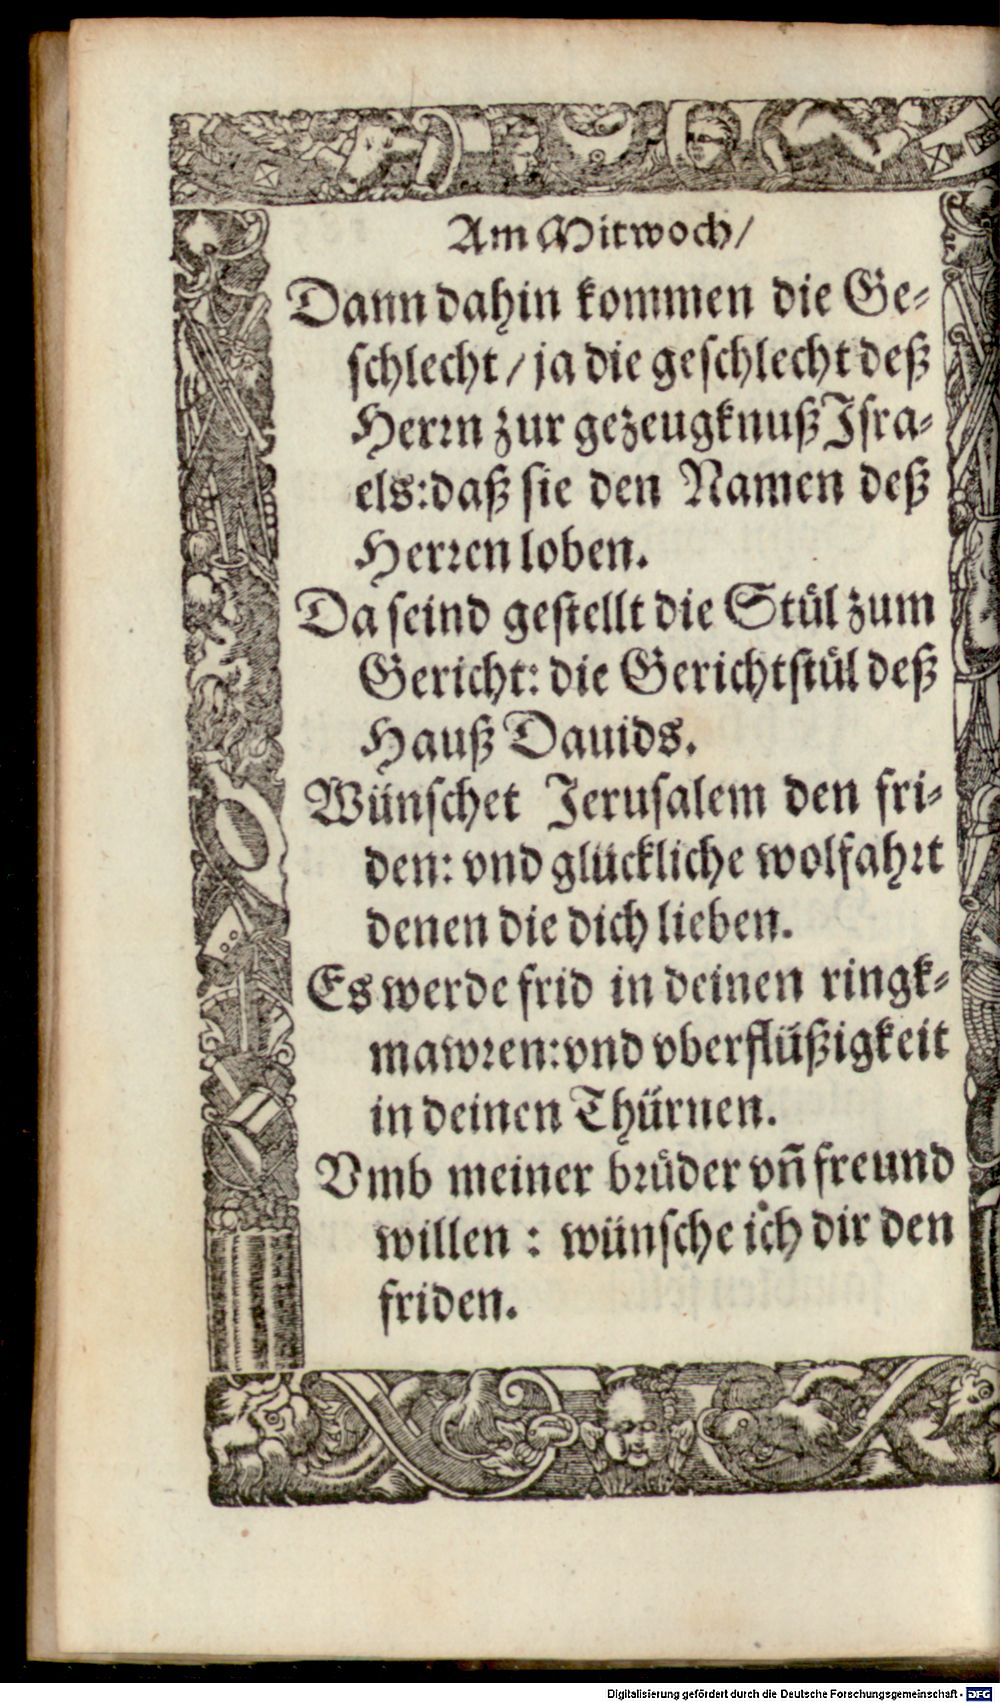 Am Mitwoch/
Dann dahin kommen die Ge⸗
schlecht / ja die geschlecht deß
Herrn zur gezeugknuß Isra⸗
els: daß sie den Namen deß
Herren loben.
Da seind gestellt die Stül zum
Gericht: die Gerichtstül deß
Hauß Dauids.
Wünschet Jerusalem den fri⸗
den: vnd glückliche wolfahrt
denen die dich lieben.
Es werde frid in deinen ringk⸗
mawren: vnd vberflüßigkeit
in deinen Thürnen.
Vmb meiner brüder vñ freund
willen : wünsche ich dir den
friden.
Digitalisierung gefördert durch die Deutsche Forschungsgemeinschaft - DFG